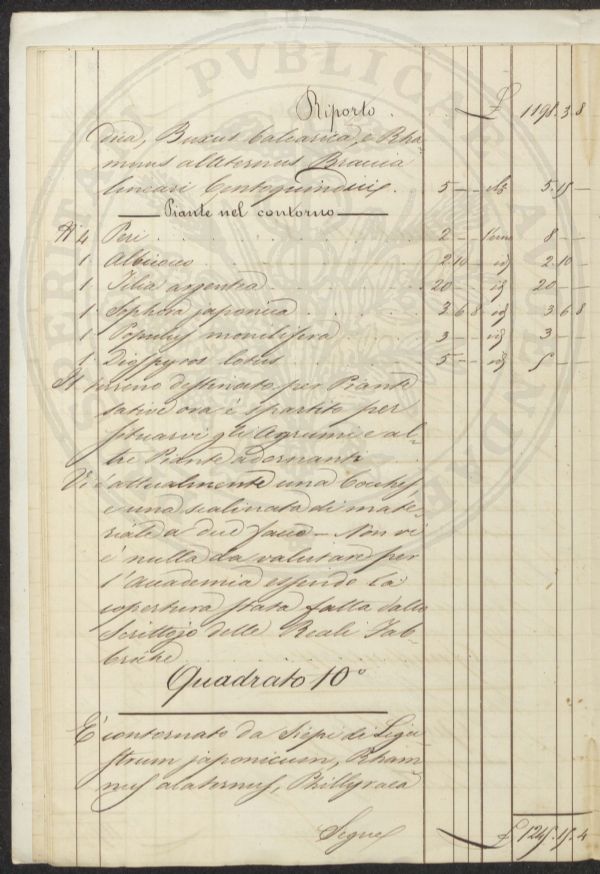 Riporto . . . £ 1198.3.8
drica, Buxus balearica, e Rha-
mnus allaternus Braccia
lineari Centoquindici . 5 — — 5.15 —
Piante nel contorno
N 4 Peri . . . . 2 — — 8 — —
1 Albicocco . . . 2.10 — id 2.10
1 Tilia argentea . . . 20 — — id 20 — —
1 Sophora japonica . . . 3 6 8 id 3.6.8
1 Populus monilifera . . 3 — — id 3 — —
1 Diospyros lotus . . . 5 — — id 5 — —
Il terreno destinato per Piante
sative ora è spartito per
situarvi gli Agrumi e al-
tre Piante adornanti
Vi è attualmente una
e una scalinata di mate-
riale a due facce — Non vi
è nulla da valutare per
l'Accademia essendo la
copertura stata fatta dallo
Scrittojo delle Reali Fab-
briche
Quadrato 10°
E' contornato da Siepi di Ligu-
strum japonicum, Rham-
nus alaternus, Phillyraea
Segue £ 1245.15.4